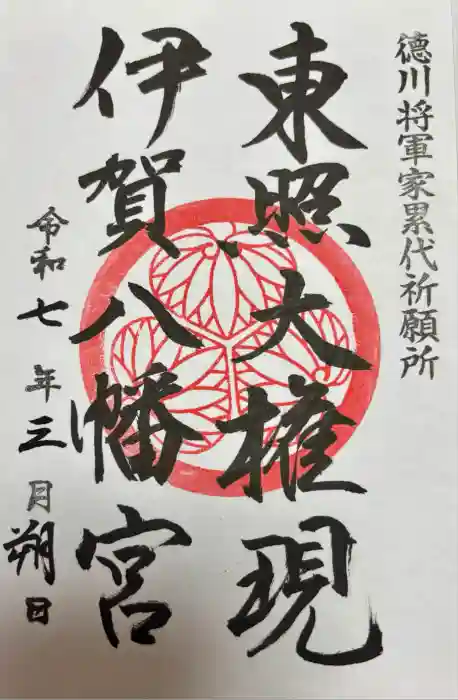 徳川将軍家累代祈願所
東照大権現
伊賀八幡宮
令和七年三月朔日